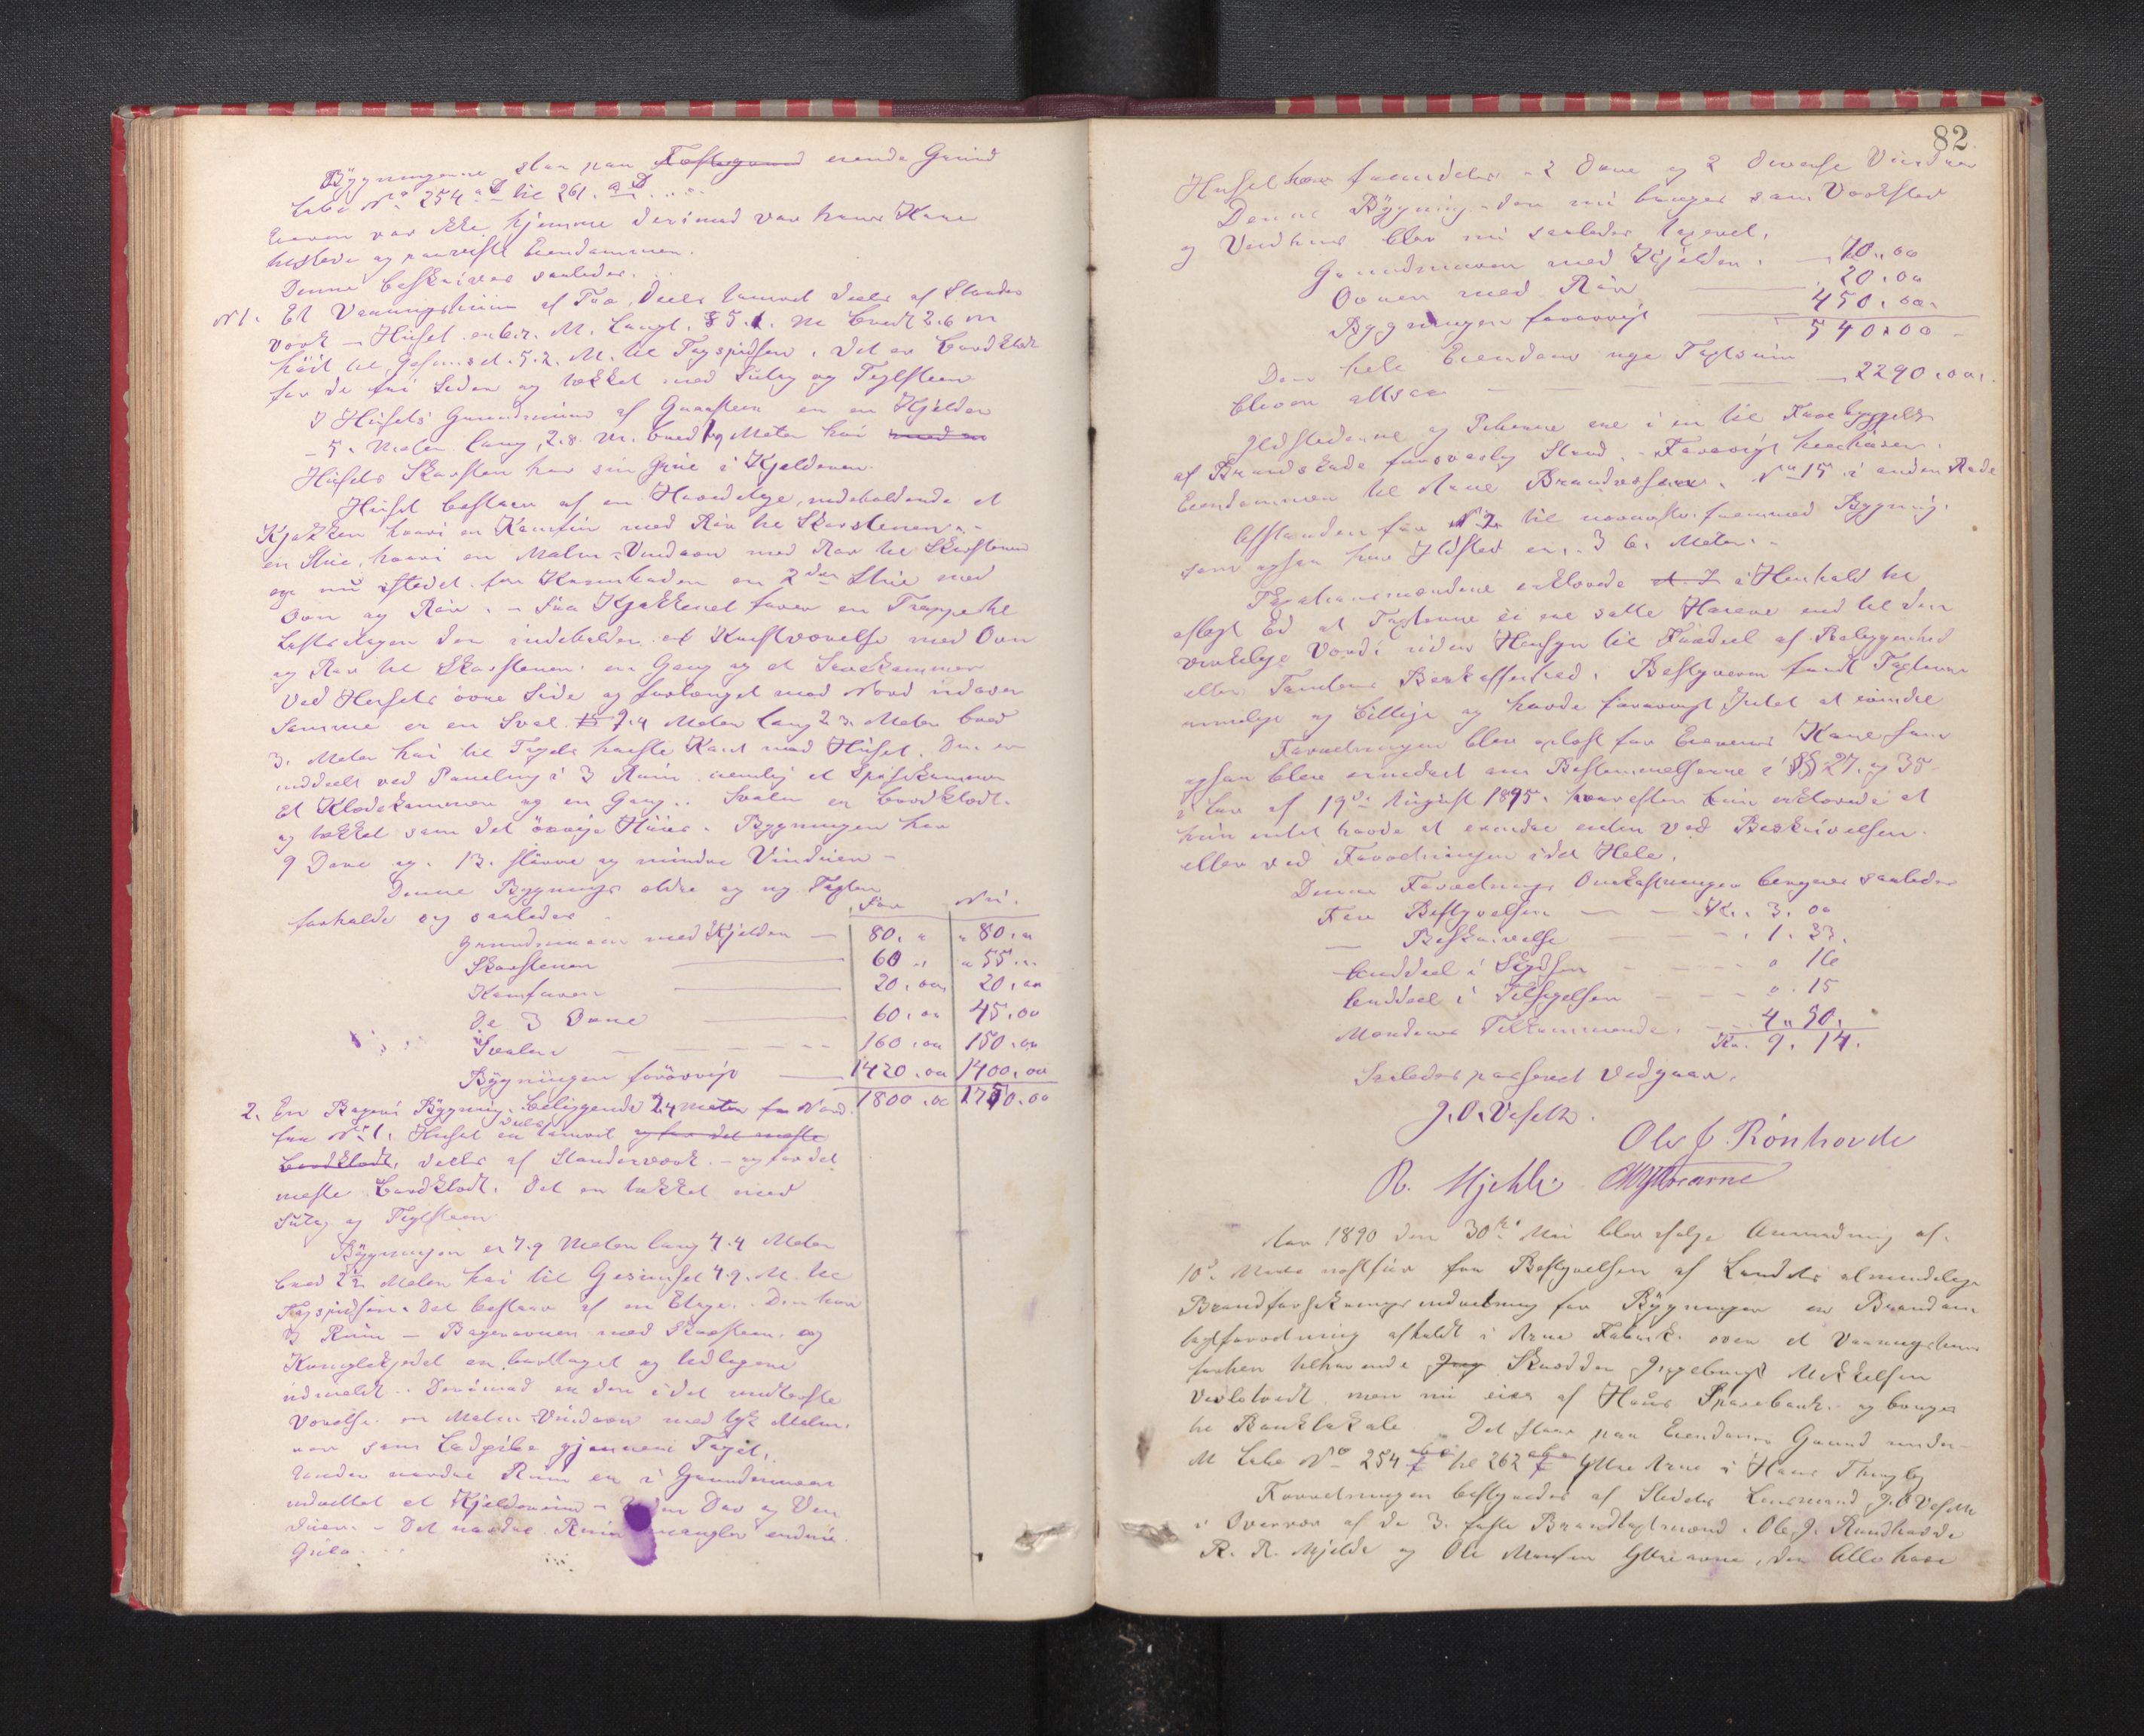 Bygningerne staa paa Fæstegrund erende Grund
Labe No 254 a D til 261. a D
Eieren var ikke hjemme derimod var hans Kone
tilstede og paaviste Eiendommen.
Denne beskrives saaledes.
No 1. Et Vaaningshuus af Træ, Deels tømret deels af Stander
værk - Huset er 6.2. M. langt, 5. M bredt 2.6 m
høit til Gesimset 5.2. M. til Tagspidsen. Det er bordklædt
for de fri Sider og tækket med Sutag og Teglsteen
I Husets Grundmuur af Graasteen er en Kjelder
5. Meter lang, 2.8. M. bred Meter høi
Husets Skorsten har sin Grue i Kjelderen.
Huset bestaar af en Hovedetage, indeholdende et
Kjøkken hvori en Komfur med Rør til Skorstenen
en Stue, hvori en Malm-Vindovn med Rør til Skorstenen
og nu istedet for Krambuden en 2den Stue med
Ovn og Rør. - Fra Kjøkkenet fører en Trappe til
Loftsetagen der indeholder et Kvistværelse med Ovn
og Rør til Skorstenen en Gang og et Sovekammer
Ved Husets øvre Side og forlænget mod Nord udover
samme er en Sval 7.4 Meter lang 2 3. Meter bred
3. Meter høi til Tagets høieste Kant mod Huset. Den er
inddeelt ved Paneling i 3 Rum nemlig et Spisekammer
Et Klædekammer og en Gang.. Svalen er bordklædt
og tækket som det øvrige Huus. Bygningen har
9 Døre og 13. større og mindre Vinduer -
Denne Bygnings ældre og ny Taxter
forholde sig saaledes Før Nu.
Grundmuren med Kjelder - 80. " " 80. "
Skorstenen 60 " " 55 "
Komfuren 20. 00 20. 00
De 3 Ovne 60. 00 45. 00
Svalen 160. 00 150. 00
Bygningen forøvrigt 1420. 00 1400. 00
1800. 00 1750. 00
2. En Bageri Bygning, beliggende 24 meter fra Nord
fra No 1. Huset er deels tømret og for det meste
bordklædt, deels af Standerværk - og for det
meste bordklædt. Det er tækket med
Sutag og Teglsteen
Bygningen er 7.9 Meter lang 4.4 Meter
bred Meter høi til Gesimset 4.9. M. til
Tagspidsen. Det bestaar af en Etage. Den har
3 Rum - Bagerovnen med Skorsteen og
er borttaget og
udmeldt. Derimod er der i det
Værelse en Malm-Vindovn med tyk Malm
rør som gjennem Taget,
Under nordre Rum er i Grundmuren
indrettet et Kjelderrum - Dør og Vin
duer. - Det nordre Rum mangler endnu
Gulv.
82
Huset har fremdeles 2 Døre og 2 Vinduer
Denne Bygning der nu bruges som Værksted
og Vedhuus blev nu saaledes taxeret.
Grundmuren med Kjelder. 70. 00
Ovnen med Rør 20. 00
Bygningen forøvrigt 450. 00
540. 00
Den hele Eiendoms nye Taxtsum
bliver altsaa 2290. 00
Ildstederne og Piberne ere i en til Forebyggelse
af Brandskade forsvarlig Stand. - Forøvrigt henhører
Eiendommen til Arne No 15 i anden Rode
Afstanden fra No 2 til nærmeste fremmed Bygning,
som ogsaa har Ildsted er 3 6. Meter.
Taxationsmændene erklærede i Henhold til
aflagt Ed at Taxterne ei ere satte høiere end til den
virkelige Værdi uden Hensyn til Fordeel af Beliggenhed
eller Tomtens Beskaffenhed. Bestyreren fandt Taxterne
rimelige og billige og havde forøvrigt Intet at erindre
Forretningen blev oplæst for Eierens Kone som
ogsaa blev erindret om Bestemmelserne i §§ 27. og 35
i Lov af 19de August 1895. hvorefter hun erklærede at
hun intet havde at erindre enten ved Beskrivelsen
eller ved Forretningen i det Hele.
Denne Forretnings Omkostninger beregnes saaledes
For Bestyrelsen - - Kr. 3. 00
— Beskrivelse . 1. 33.
Andeel i Skydsen " 16
Andeel i Tilsigelsen " 15
Mændenes Tilkommende 4 " 50.
Kr. 9. 14.
Saaledes passeret Vedgaaer.
J. O. Vefeth.
Ole J. Rønhovde
R. Mjelde
Aar 1890 den 30te Mai blev ifølge Anmodning af
10de næstfør fra Bestyrelsen af Landets almindelige
Brandforsikringsindretning for Bygninger en Brandom
taxtforretning afholdt i Arne Fabrik over et Vaaningshuus
forhen tilhørende Jng Skrædder Ingebrigt Mikkelsen
men nu eies af Haus Sparebank og bruges
til Banklokale. Det staar paa Eiendoms Grund under
M Labe No 254 til 262 Yttre Arne i Haus Thinglag
Forretningen bestyredes af Stedets Lensmand J. O Vefeth
i Overvær af de 3. faste Brandtaxtmænd Ole J. Rundhovde
R. R. Mjelde og Ole Monsen Yttrearne, der Alle have